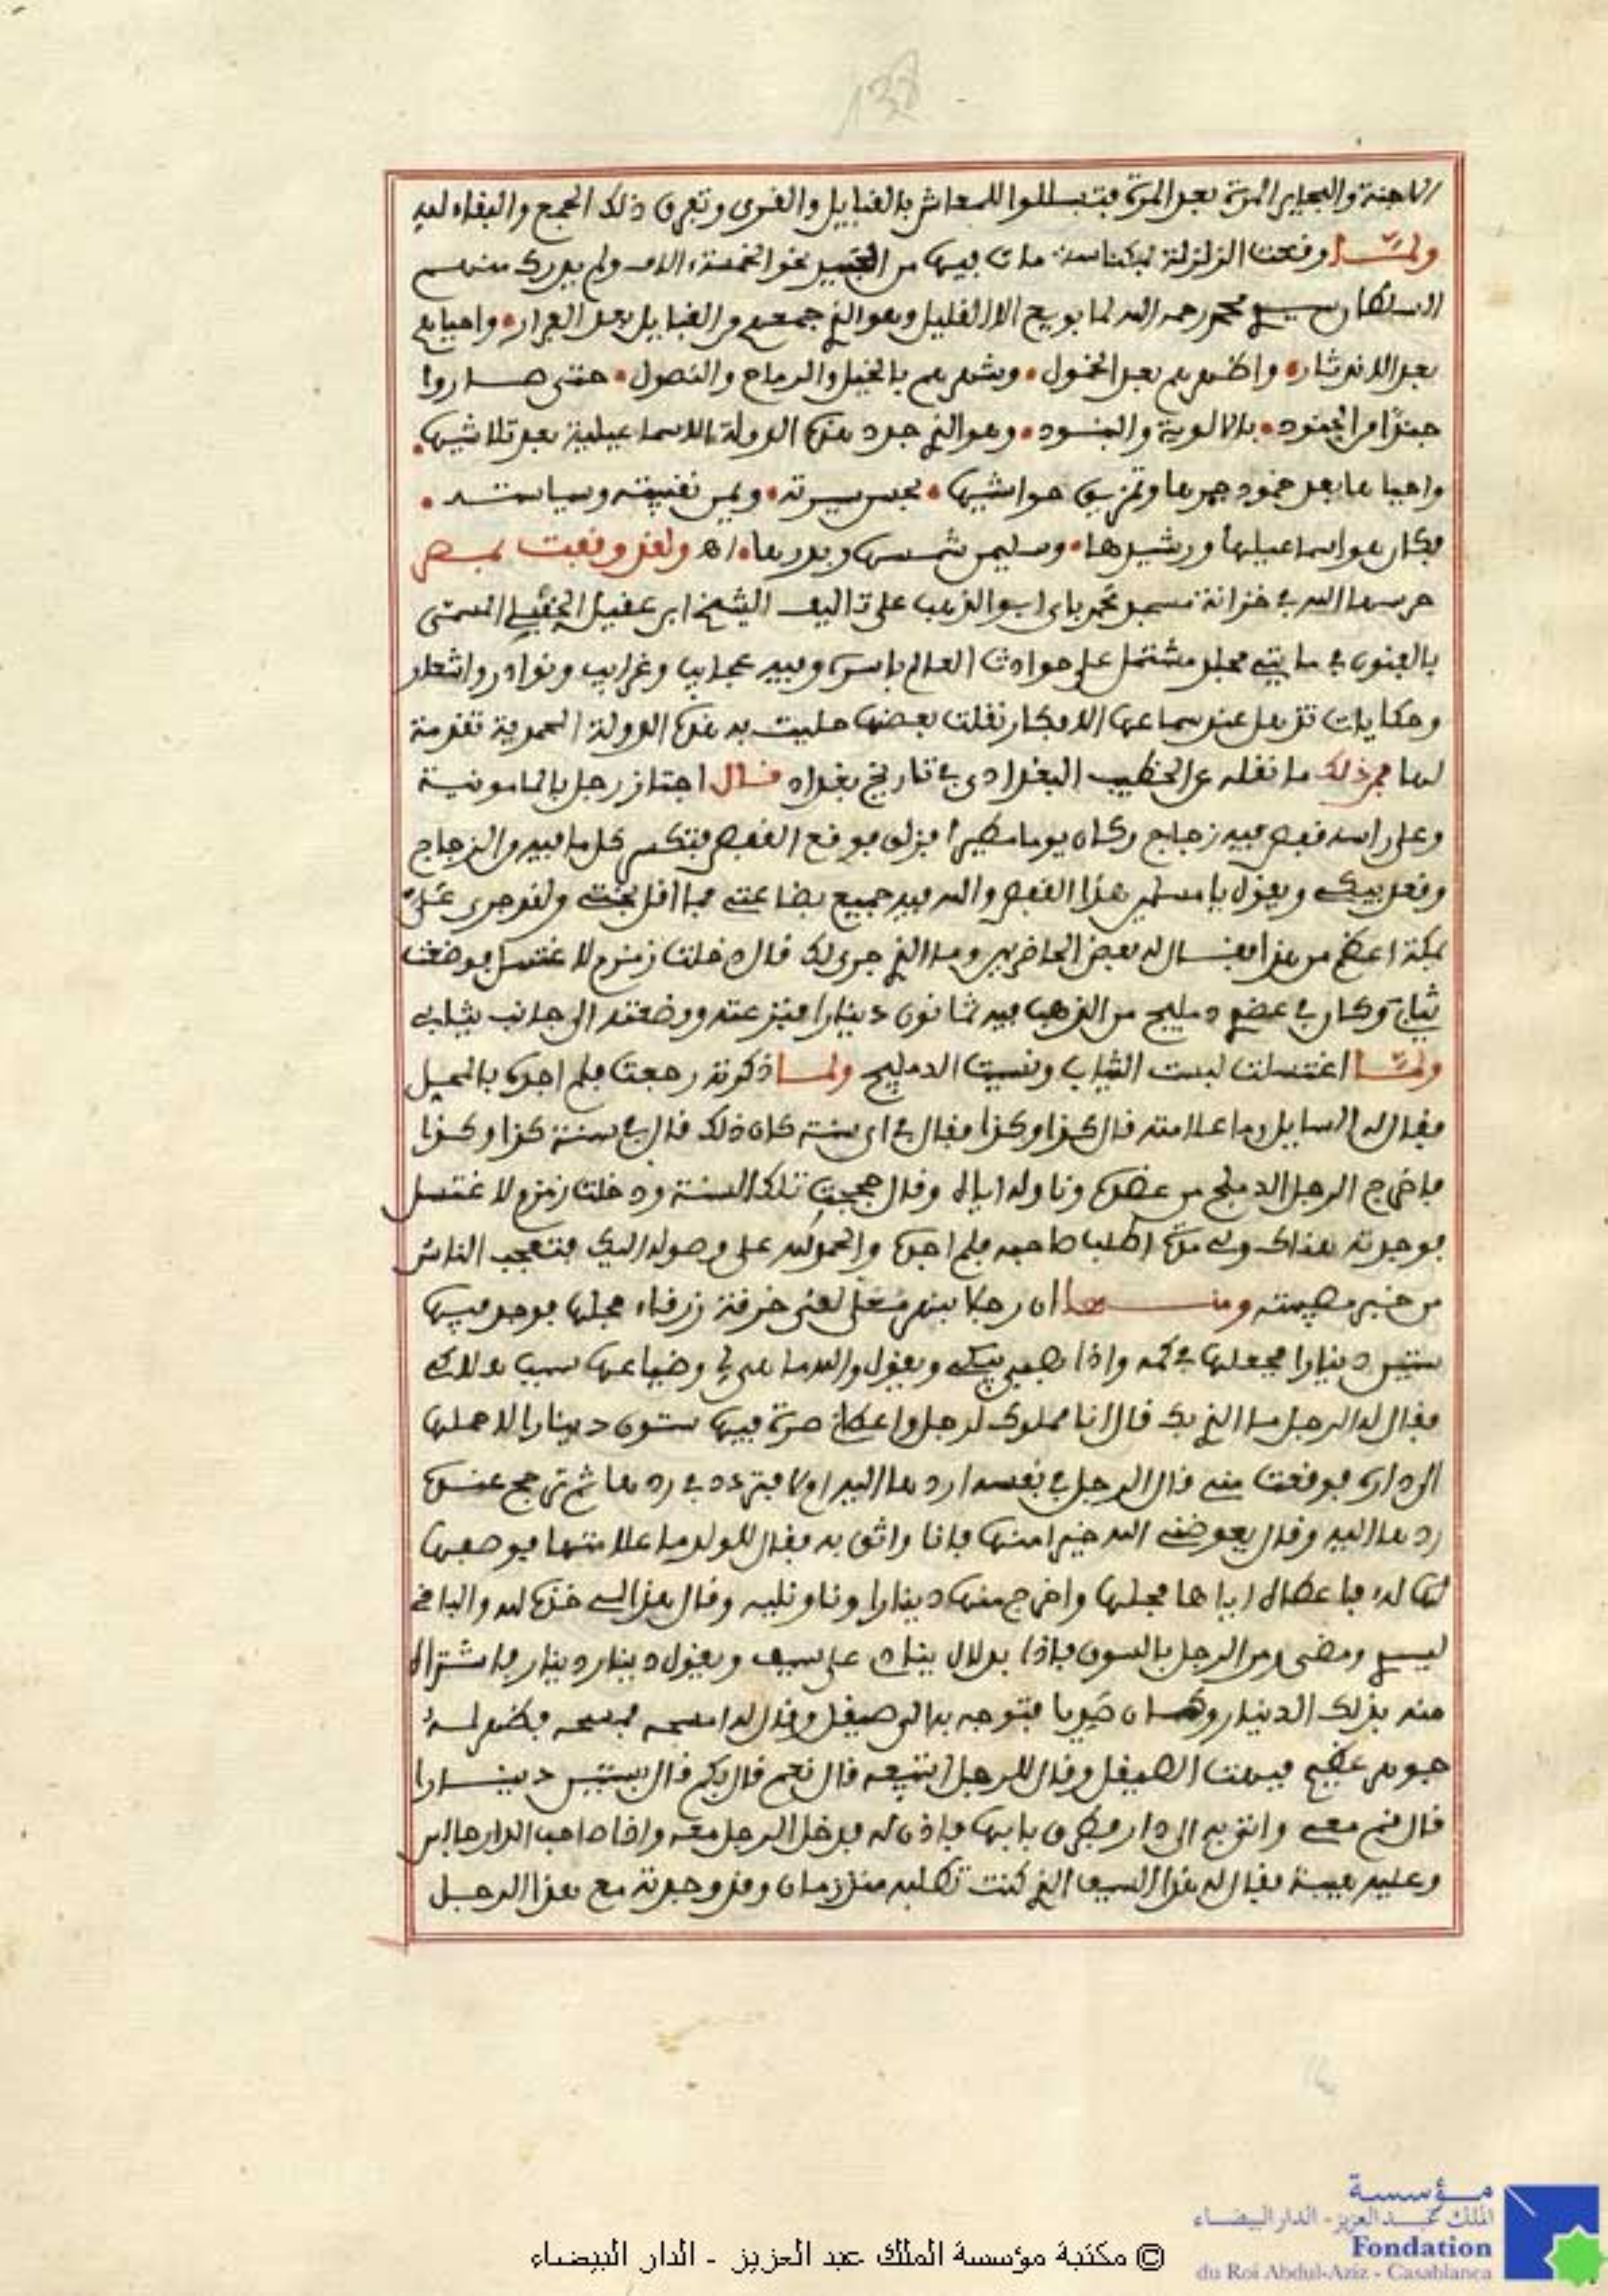 138
الاجنة والبحاير المرة بعد المرة فتسللوا للمعاش بالقبايل والقرى وتفرق ذلك الجمع والبقاء لله
ولما وقعت الزلزلة بمكناسة مات فيها من العبيد نحو الخمسة ءالاف ولم يدرك منهم
السلطان سيدي محمد رحمه الله لما بويع الا القليل وهو الذي جمعهم من القبايل بعد الفرار، واحياهم
بعد الاندثار، واظهرهم بعد الخمول، وشهرهم بالخيل والرماح والنصول، حتى صاروا
جندا من الجنود، بالالوية والبنود، وهو الذي جدد هذه الدولة الاسماعيلية بعد تلاشيها،
واحياها بعد خمود جمرها وتمزيق حواشيها، بحسن سيرته، ويمن نقيبته وسياسته،
فكان هو اسماعيلها ورشيدها، وسليمن شمسها وبدرها، اه ولقد وقفت بمصر
حرسها الله في خزانة مسجد محمد باى ابو الذهب على تاليف الشيخ ابن عقيل الحنبلي المسمى
بالفنون في مايتي مجلد مشتمل على حوادث العالم باسره وفيه عجايب وغرايب ونوادر واشعار
وحكايات تذهل عند سماعها الافكار نقلت بعضها حليت به هذه الدولة المحمدية تقدمة
لها فمن ذلك ما نقله عن الخطيب البغدادي في تاريخ بغداد قال اجتاز رجل بالمامونية
وعلى راسه قفص فيه زجاج وكان يوما مطيرا فزلق فوقع القفص فتكسر كل ما فيه من الزجاج
وقعد يبكي ويقول يا مسلمين هذا القفص والله فيه جميع بضاعتي فما اقل بختي ولقد جرى علي
بمكة اعظم من هذا فقال له بعض الحاضرين وما الذي جرى لك قال دخلت زمزم لاغتسل فوضعت
ثيابي وكان في عضدي دمليج من الذهب فيه ثمانون دينارا فنزعته ووضعته الى جانب ثيابي
ولما اغتسلت لبست الثياب ونسيت الدمليج ولما ذكرته رجعت فلم اجده بالمحل
فقال له السايل وما علامته قال كذا وكذا فقال في اى سنة كان ذلك قال في سنة كذا وكذا
فاخرج الرجل الدملج من عضده وناوله اياه وقال حججت تلك السنة ودخلت زمزم لاغتسل
فوجدته هناك ولي مدة اطلب صاحبه فلم اجده والحمد لله على وصوله اليك فتعجب الناس
من خبر مصيبته ومنها ان رجلا بنهر معلى لقي خرقة زرقاء فحلها فوجد فيها
ستين دينارا فجعلها في كمه واذا بصبي يبكي ويقول والله ما هي لي وضياعها سبب هلاكي
فقال له الرجل ما الذي بك قال انا مملوك لرجل واعطاني صرة فيها ستون دينارا لاحملها
الى داره فوقعت مني قال الرجل في نفسه اردها اليه ام لا فتردد في ردها ثم ترجح عنده
ردها اليه وقال يعوضني الله خيرا منها فانا واثق به فقال للولد ما علامتها فوصفها
لها له فاعطاه اياها فحلها واخرج منها دينارا وناولنيه وقال هذا لي خذه لله والباقي
لسيدي ومضى ومر الرجل بالسوق فاذا بدلال ينادي على سيف ويقول دينار دينار فاشتراه
منه بذلك الدينار وكان صديا فتوجه به الى صيقل وقال له امسحه فمسحه فظهر له
جوهر عظيم فبهت الصيقل وقال للرجل اتبيعه قال نعم قال بكم قال بستين دينارا
قال قم معي واتى به الى دار فطرق بابها فاذن له فدخل الرجل معه واذا صاحب الدار جالس
وعليه هيبة فقال له هذا السيف الذي كنت تطلبه منذ زمان وقد وجدته مع هذا الرجل
مؤسسة
الملك عبد العزيز - الدار البيضاء
Fondation
du Roi Abdul-Aziz - Casablanca
© مكتبة مؤسسة الملك عبد العزيز - الدار البيضاء